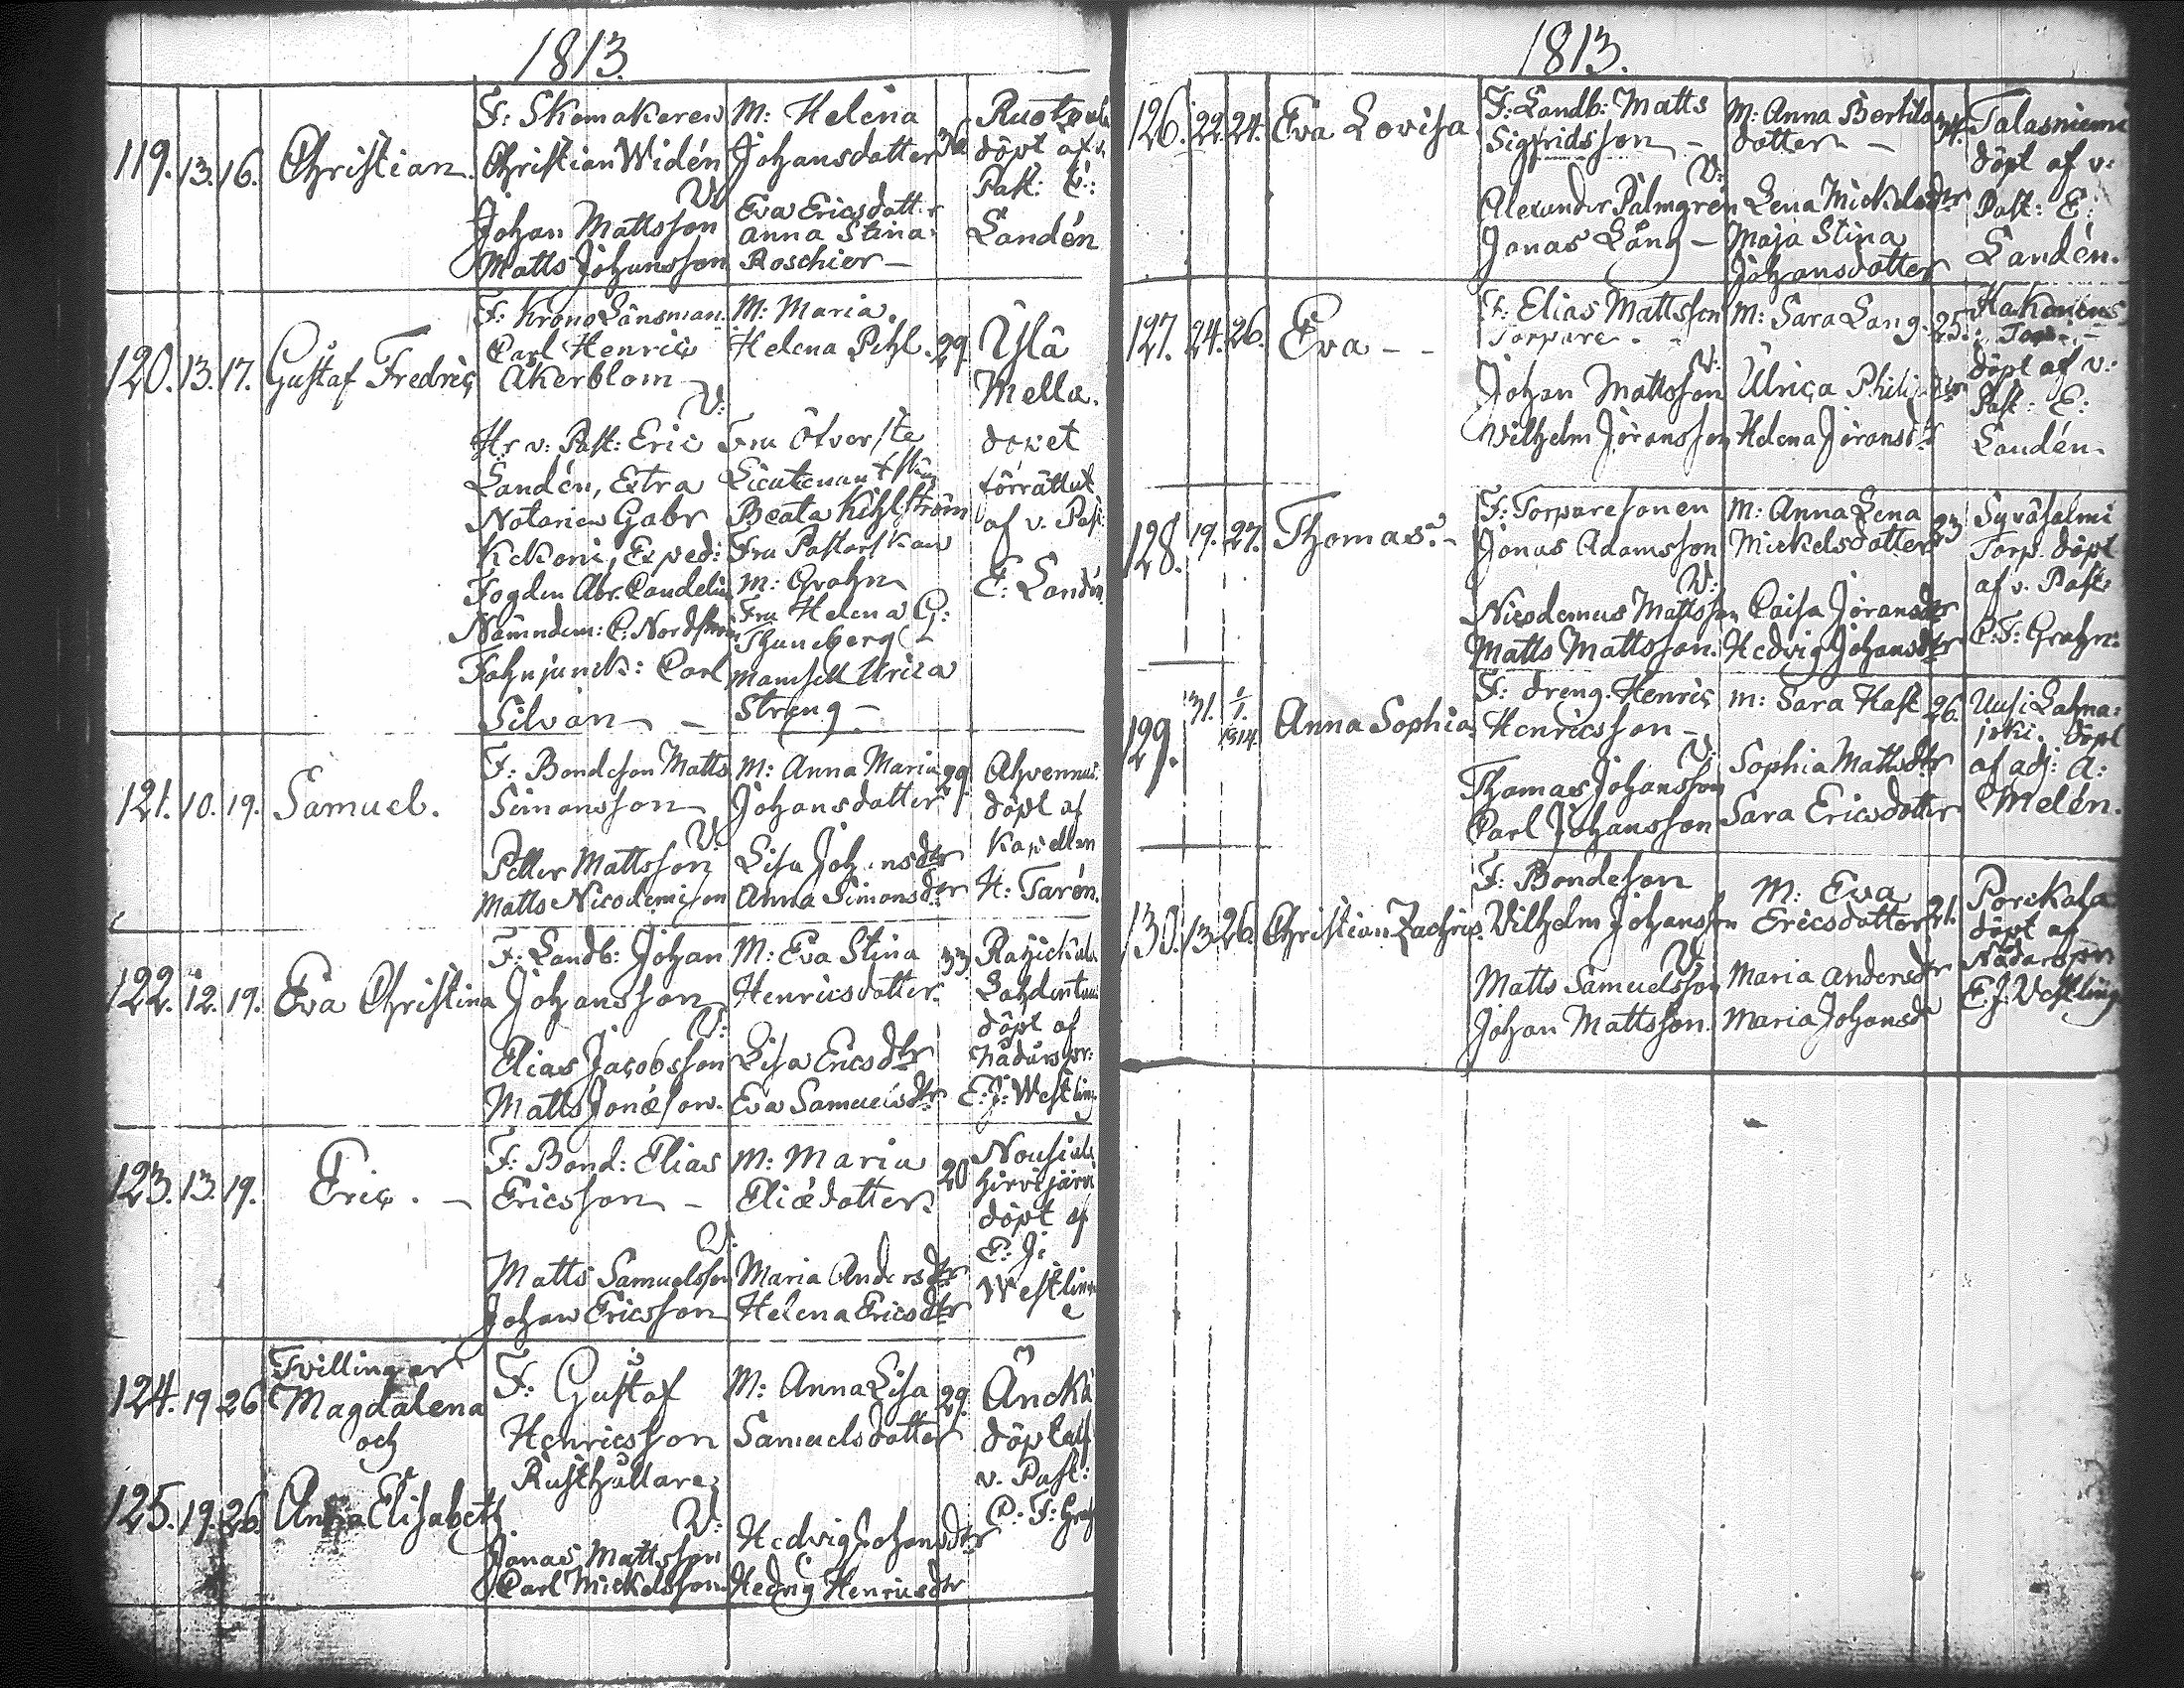 1813.
119. 13. 16. Christian.
F: Skomakaren
Christian Widén
V:
Johan Mattsson
Matts Johansson
M: Helena
Johansdotter
Eva Ericsdotter
Anna Stina
Roschier —
döpt af v.
Past: E:
Landén
120. 13. 17. Gustaf Fredric
F: Krono Länsman
Carl Henric
Åkerblom
V:
Hr v: Past: Eric
Landén, Extra
Notarien Gabr
Exped:
Fogden Abr.
Nämndem: C. Nordström
Fahnjunck: Carl
Silvan —
M: Maria
Helena Pihl. 29.
Fru Öfverste
Lieutenantskan
Beata Kihlström
Fru Pastorskan
M: Grahn
Fru Helena G:
Thuneberg
Mamsell Ulrica
Streng —
Ylä
Mella.
döpet
förrättat
af v. Past
E: Landén
121. 10. 19. Samuel.
F: Bondeson Matts
Simonsson
V:
Petter Mattsson
Matts Nicodemison
M: Anna Maria 29
Johansdotter
Lisa Johansdtr
Anna Simonsdtr
Ahvennus.
döpt af
Kapellan
H: Tarén.
122. 12. 19. Eva Christina
F: Landb: Johan
Johansson
V:
Elias Jacobsson
Matts Jonæson.
M: Eva Stina 33
Henricsdotter
Lisa Ericsdtr
Eva Samuelsdtr
döpt af
Nådårspr:
E: J: Westling
123. 13. 19. Eric. —
F: Bond: Elias
Ericsson —
V:
Matts Samuelsson
Johan Ericsson
M: Maria 20
Eliædotter.
Maria Andersdtr
Helena Ericsdtr
Nousiala
Hirvijärvi
döpt af
E: J:
Westling
Tvillingar
124. 19 26 Magdalena
och
125. 19. 26. Anna Elisabeth
F: Gustaf
Henricsson
Rusthållare
V:
Jonas Mattsson
Carl Mickelsson
M: Anna Lisa 29.
Samuelsdotter
Hedvig Johansdtr
Hedvig Henricsdtr
döpt af
v. Past:
C: F: Grah
1813.
126. 22. 24. Eva Lovisa
F: Landb: Matts
Sigfridsson —
V:
Alexander Palmgren
Jonas Lång —
M: Anna Bertils
dotter —
Lena Mickelsdtr
Maja Stina
Johansdotter
Talasniemi
döpt af v:
Past: E:
Landén.
127. 24. 26. Eva - -
F: Elias Mattsson
Torpare.
V:
Johan Mattsson
Vilhelm Jöransson
M: Sara Lang. 25.
Ulrica
Helena Jöransdr
döpt af v:
Past: E:
Landén.
128. 19. 27. Thomas. -
F: Torparesonen
Jonas Adamsson
V:
Nicodemus Mattsson
Matts Mattsson.
M: Anna Lena 23
Mickelsdotter
Caisa Jöransdtr
Hedvig Johansdtr
Syväsalmi
Torp. döpt
af v. Past:
C: F: Grahn.
129. 31. 1/1. 1814. Anna Sophia
F: dreng. Henric
Henricsson —
V:
Thomas Johansson
Carl Johansson
M: Sara Hast 26.
Sophia Mattsdtr
Sara Ericsdotter
Uusi Lahna:
joki. döpt
af adj: A:
Melén.
130. 13 26. Christian Zachris.
F: Bondeson
Vilhelm Johansson
V:
Matts Samuelsson
Johan Mattsson.
M: Eva
Ericsdotter 21.
Maria Andersdtr
Maria Johansd
Porckala
döpt af
Nådårspr
E. J. Vestling